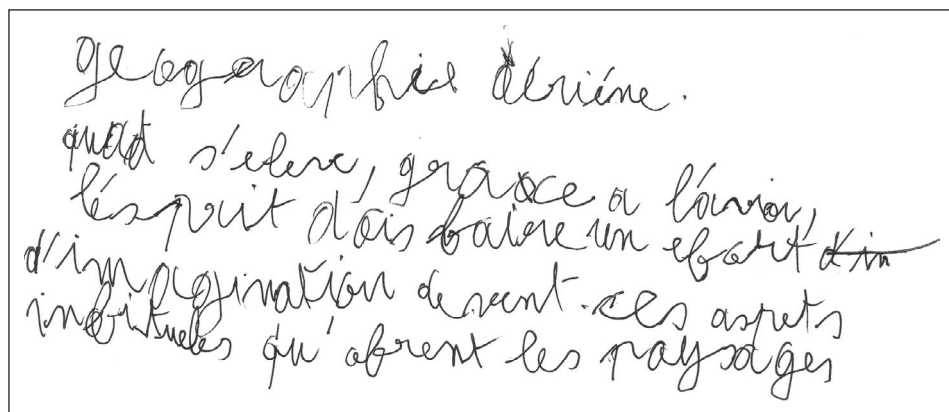 geographie dériéne.
quat s'eleve, grace a l'avion,
l'ésprit d'ois faire un efort d'in
d'imagination devent. ces aspets
inabituels qu'ofrent les paysages